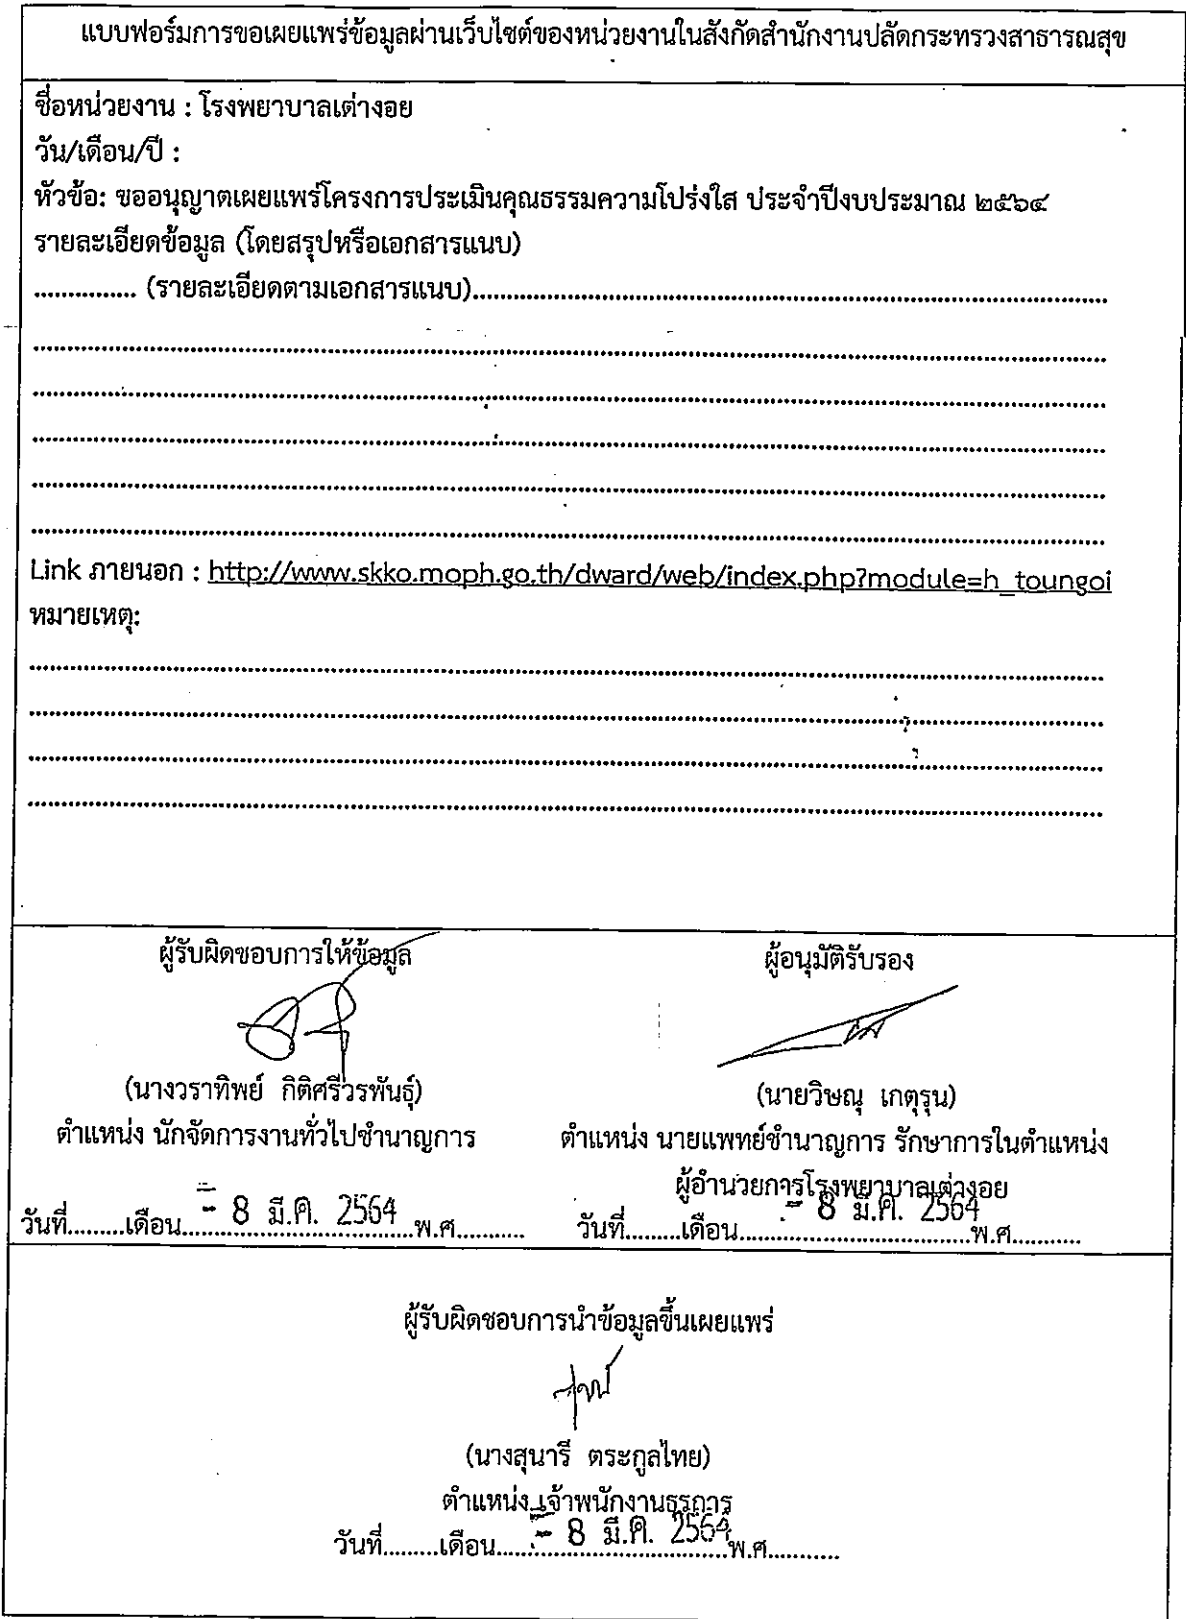 แบบฟอร์มการขอเผยแพร่ข้อมูลผ่านเว็บไซต์ของหน่วยงานในสังกัดสำนักงานปลัดกระทรวงสาธารณสุข
ชื่อหน่วยงาน : โรงพยาบาลเต่างอย
วัน/เดือน/ปี :
หัวข้อ: ขออนุญาตเผยแพร่โครงการประเมินคุณธรรมความโปร่งใส ประจำปีงบประมาณ ๒๕๖๔
รายละเอียดข้อมูล (โดยสรุปหรือเอกสารแนบ)
............... (รายละเอียดตามเอกสารแนบ)...............
Link ภายนอก : http://www.skko.moph.go.th/dward/web/index.php?module=h_toungoi
หมายเหตุ:
ผู้รับผิดชอบการให้ข้อมูล
(นางวราทิพย์ กิติศรีวรพันธุ์)
ตำแหน่ง นักจัดการงานทั่วไปชำนาญการ
วันที่.........เดือน - 8 มี.ค. 2564 พ.ศ...........
ผู้อนุมัติรับรอง
(นายวิษณุ เกตุรุน)
ตำแหน่ง นายแพทย์ชำนาญการ รักษาการในตำแหน่ง
ผู้อำนวยการโรงพยาบาลเต่างอย
วันที่.........เดือน - 8 มี.ค. 2564 พ.ศ...........
ผู้รับผิดชอบการนำข้อมูลขึ้นเผยแพร่
(นางสุนารี ตระกูลไทย)
ตำแหน่ง เจ้าพนักงานธุรการ
วันที่.........เดือน - 8 มี.ค. 2564 พ.ศ...........